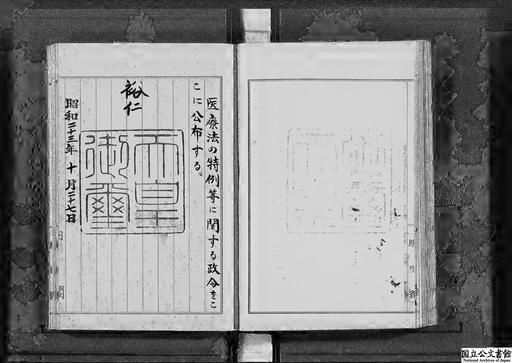 医療法の特例等に関する政令をこ
こに公布する。
裕仁
天皇
御璽
昭和二十三年十月二十七日
国立公文書館
National Archives of Japan